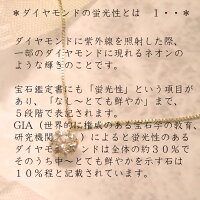 *ダイヤモンドの蛍光性とは Ⅰ・・*
ダイヤモンドに紫外線を照射した際、
一部のダイヤモンドに現れるネオンの
ような輝きのことです。
宝石鑑定書にも「蛍光性」という項目が
あり、「なし～とても鮮やか」まで、
5段階で表記されます。
GIA(世界的に権威のある宝石学の教育、
研究機関)によると蛍光性のある
ダイヤモンドは全体の約30%で
そのうち中～とても鮮やかを示す石は
10%程と記載されています。